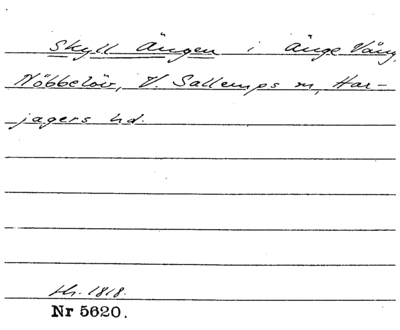 Skyll Ängen i Änge Vång,
Nöbbelöv, V. Sallerups sn, Har-
jagers hd.
sk. 1818.
Nr 5620.